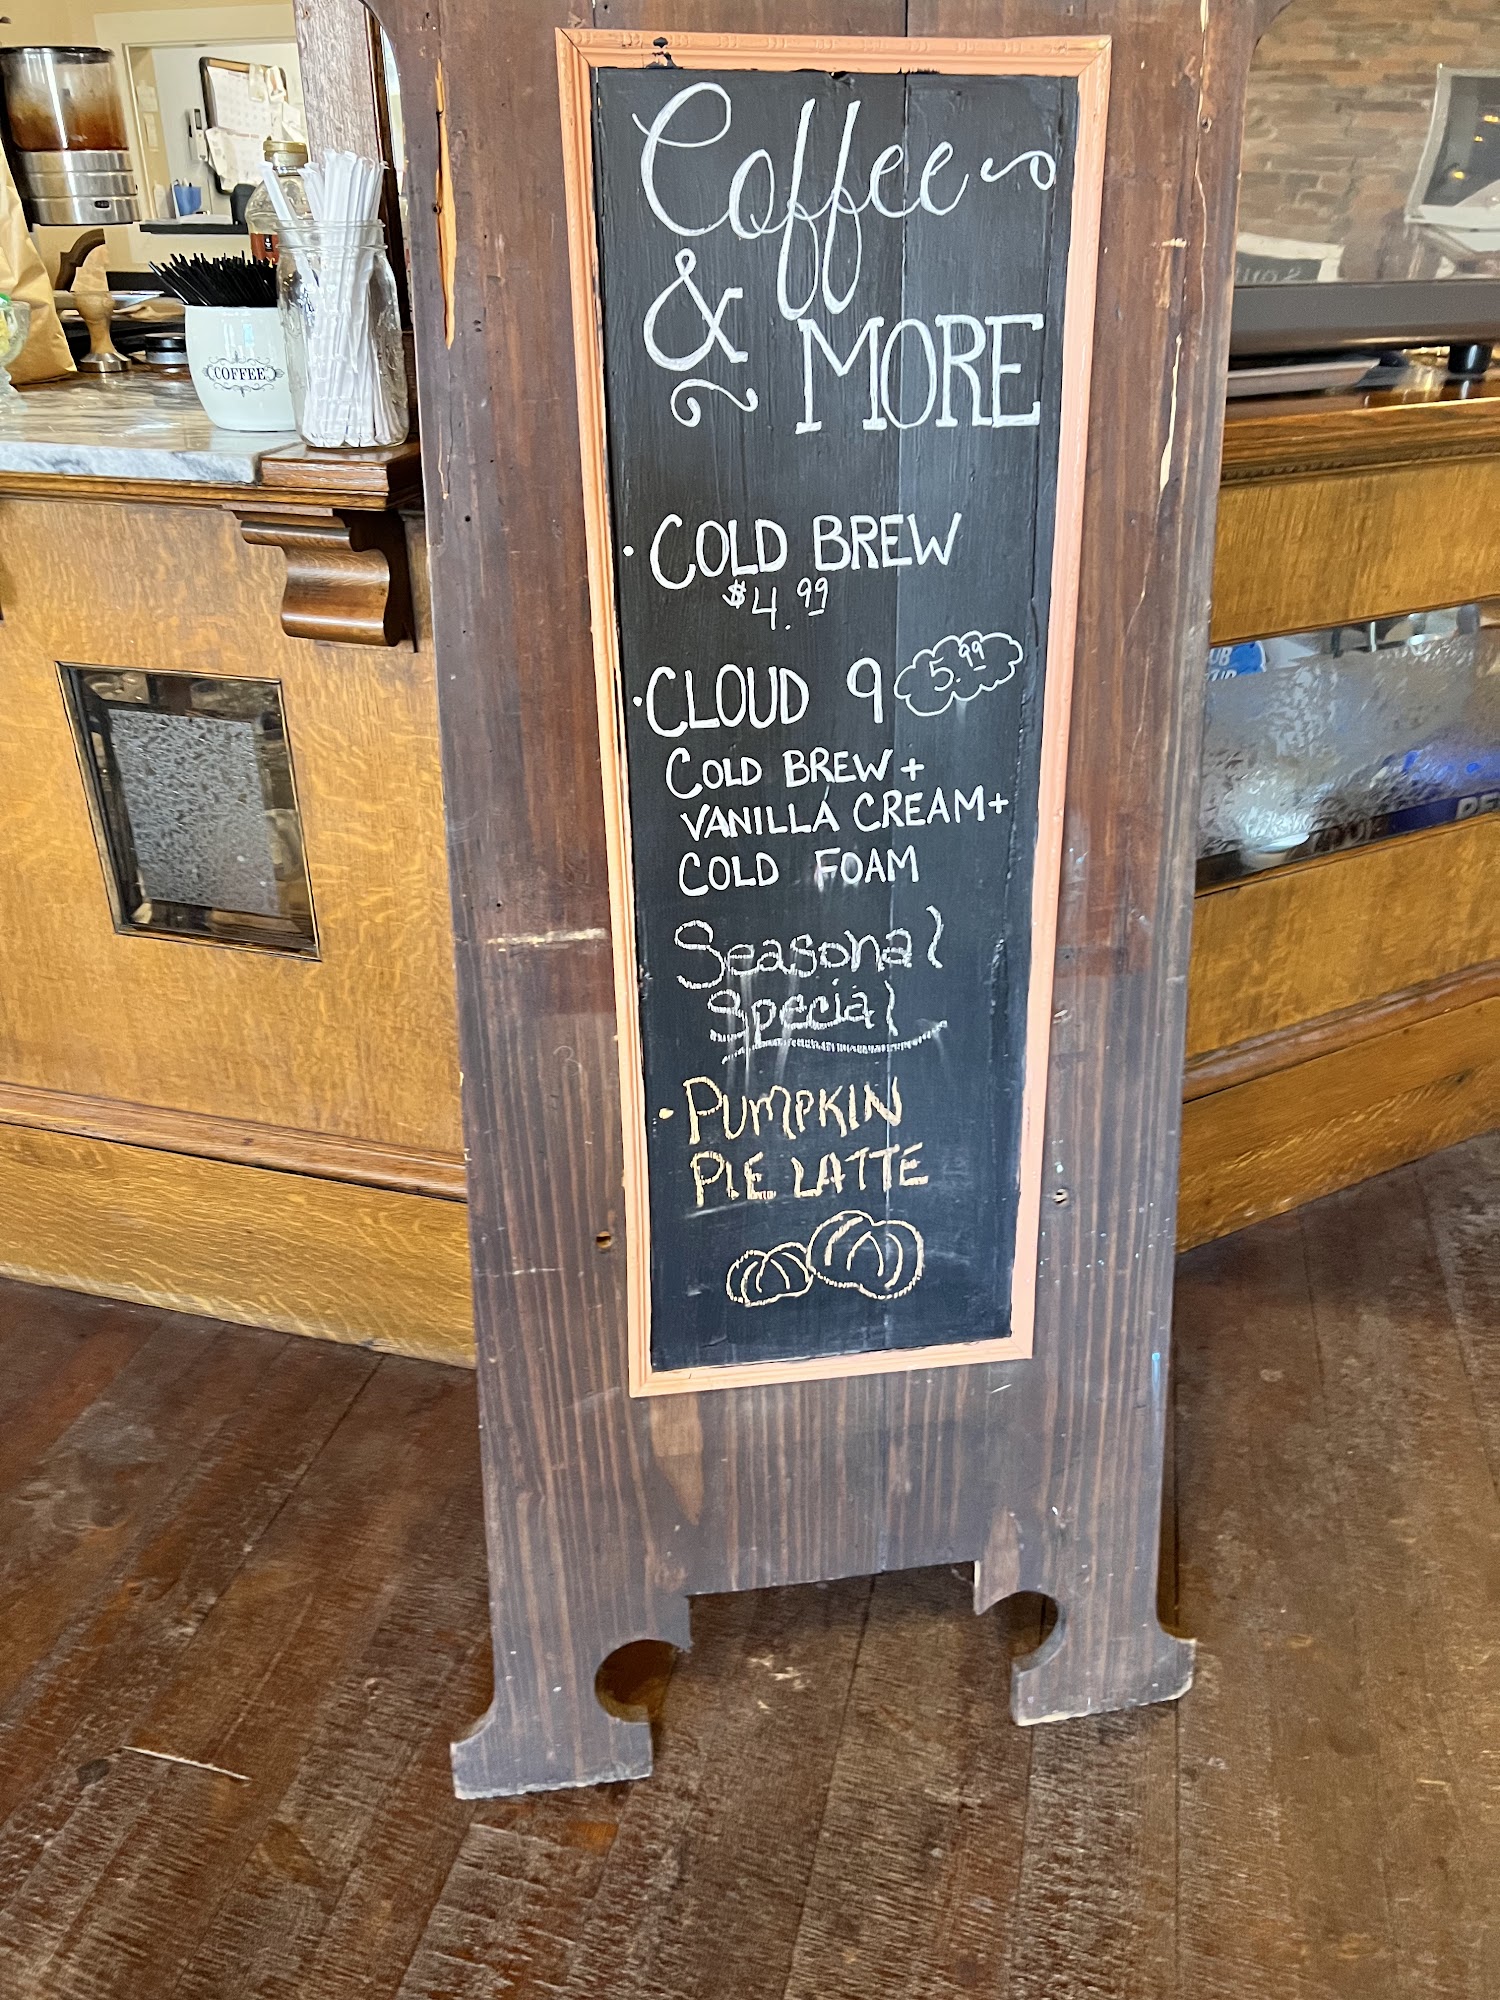 Coffee
& MORE
· COLD BREW
$4.99
· CLOUD 9 5.99
COLD BREW +
VANILLA CREAM+
COLD FOAM
Seasonal
Special
· PUMPKIN
PIE LATTE
COFFEE